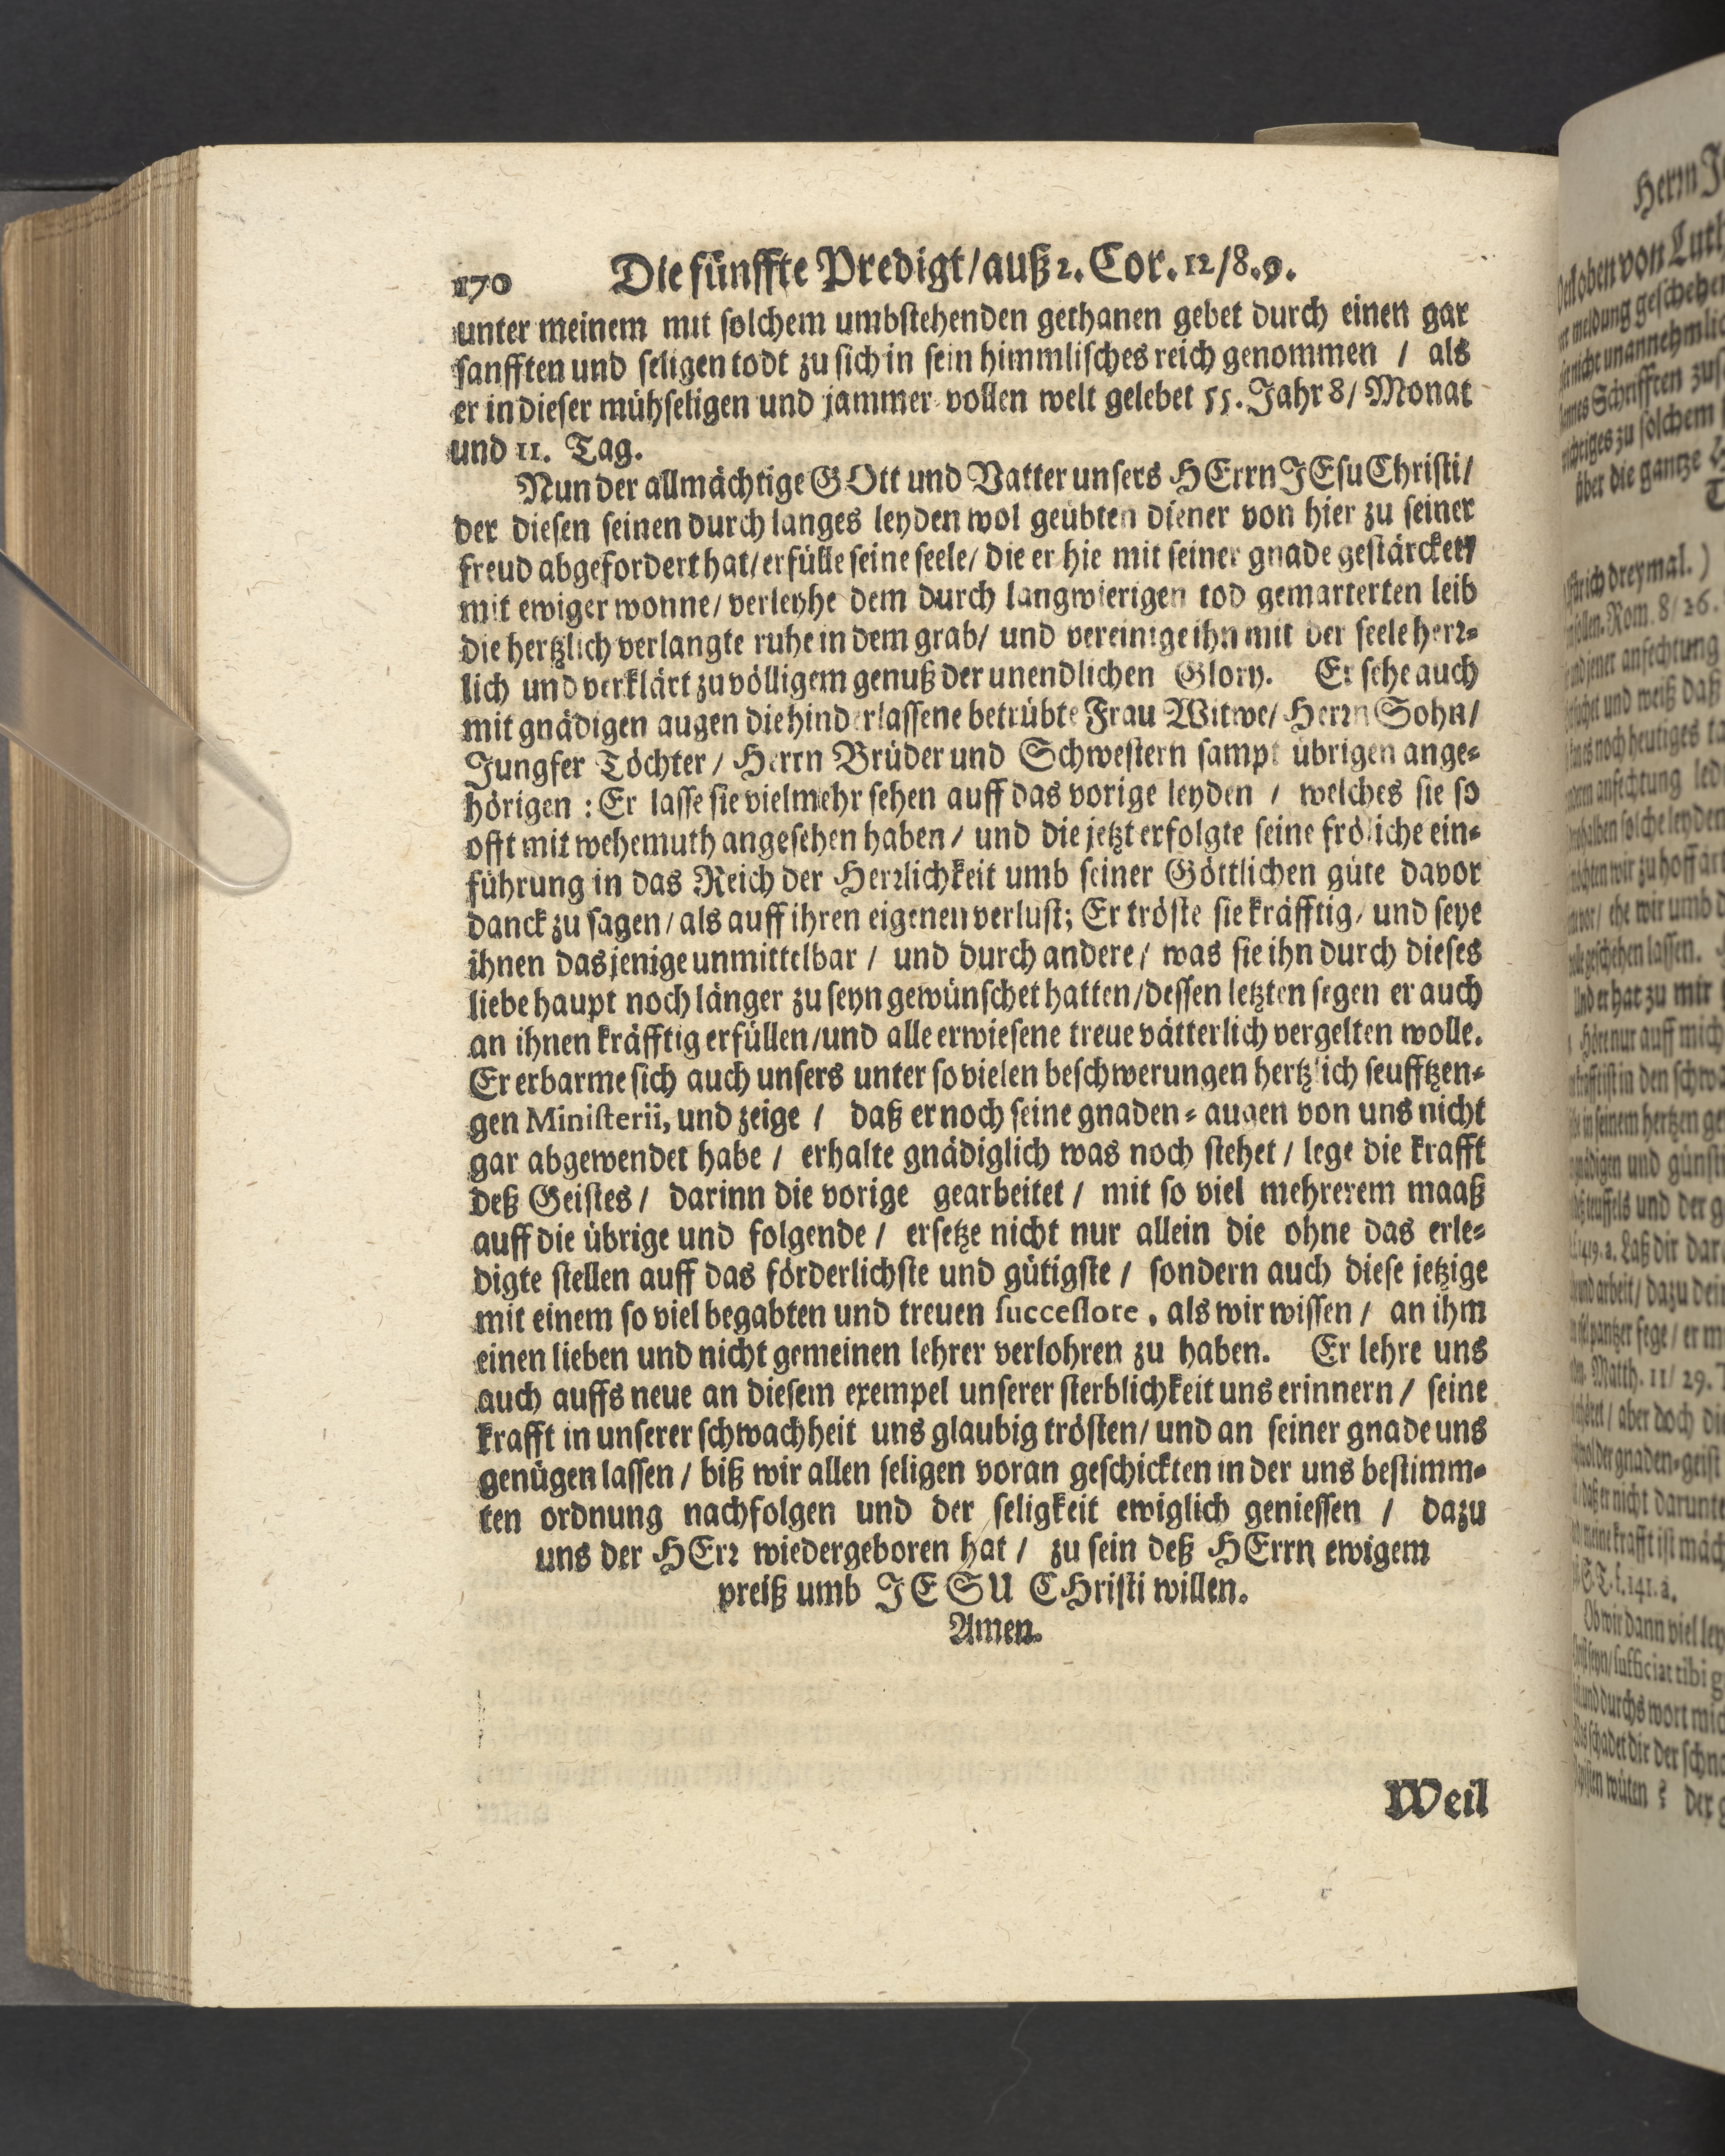 170 Die fünffte Predigt/auß 2. Cor. 12/8.9.
unter meinem mit solchem umbstehenden gethanen gebet durch einen gar
sanfften und seligen todt zu sich in sein himmlisches reich genommen / als
er in dieser mühseligen und jammer-vollen welt gelebet 55. Jahr 8/ Monat
und 11. Tag.
Nun der allmächtige GOtt und Vatter unsers HErrn JEsu Christi/
der diesen seinen durch langes leyden wol geübten diener von hier zu seiner
freud abgefordert hat/ erfülle seine seele/ die er hie mit seiner gnade gestärcket/
mit ewiger wonne/ verleyhe dem durch langwierigen tod gemarterten leib
die hertzlich verlangte ruhe in dem grab/ und vereinige ihn mit der seele herr-
lich und verklärt zu völligem genuß der unendlichen Glory. Er sehe auch
mit gnädigen augen die hinderlassene betrübte Frau Witwe/ Herrn Sohn/
Jungfer Töchter/ Herrn Brüder und Schwestern sampt übrigen ange-
hörigen : Er lasse sie vielmehr sehen auff das vorige leyden / welches sie so
offt mit wehemuth angesehen haben/ und die jetzt erfolgte seine fröliche ein-
führung in das Reich der Herrlichkeit umb seiner Göttlichen güte davor
danck zu sagen/ als auff ihren eigenen verlust; Er tröste sie kräfftig/ und seye
ihnen dasjenige unmittelbar / und durch andere/ was sie ihn durch dieses
liebe haupt noch länger zu seyn gewünschet hatten/dessen letzten segen er auch
an ihnen kräfftig erfüllen/und alle erwiesene treue vätterlich vergelten wolle.
Er erbarme sich auch unsers unter so vielen beschwerungen hertzlich seufftzen-
gen Ministerii, und zeige / daß er noch seine gnaden-augen von uns nicht
gar abgewendet habe / erhalte gnädiglich was noch stehet / lege die krafft
deß Geistes / darinn die vorige gearbeitet / mit so viel mehrerem maaß
auff die übrige und folgende / ersetze nicht nur allein die ohne das erle-
digte stellen auff das förderlichste und gütigste / sondern auch diese jetzige
mit einem so viel begabten und treuen successore, als wir wissen / an ihm
einen lieben und nicht gemeinen lehrer verlohren zu haben. Er lehre uns
auch auffs neue an diesem exempel unserer sterblichkeit uns erinnern / seine
krafft in unserer schwachheit uns glaubig trösten/ und an seiner gnade uns
genügen lassen / biß wir allen seligen voran geschickten in der uns bestimm-
ten ordnung nachfolgen und der seligkeit ewiglich geniessen / dazu
uns der HErr wiedergeboren hat / zu sein deß HErrn ewigem
preiß umb JESU CHristi willen.
Amen.
Weil